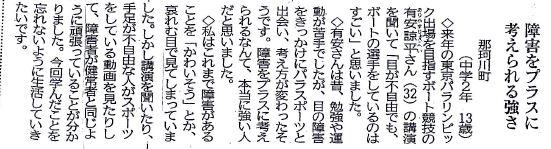 障害をプラスに
考えられる強さ
那珂川町
(中学2年 13歳)
◇来年の東京パラリンピッ
ク出場を目指すボート競技の
有安諒平さん(32)の講演
を聞いて「目が不自由でも、
ボートの選手をしているのは
すごい」と思いました。
◇有安さんは昔、勉強や運
動が苦手でしたが、目の障害
をきっかけにパラスポーツと
出会い、考え方が変わったそ
うです。障害をプラスに考え
られるなんて、本当に強い人
だと思いました。
◇私はこれまで障害がある
ことを「かわいそう」とか、
哀れむ目で見てしまっていま
した。しかし講演を聞いたり、
手足が不自由な人がスポーツ
をしている動画を見たりし
て、障害者が健常者と同じよ
うに頑張っていることが分か
りました。今回学んだことを
忘れないように生活していき
たいです。